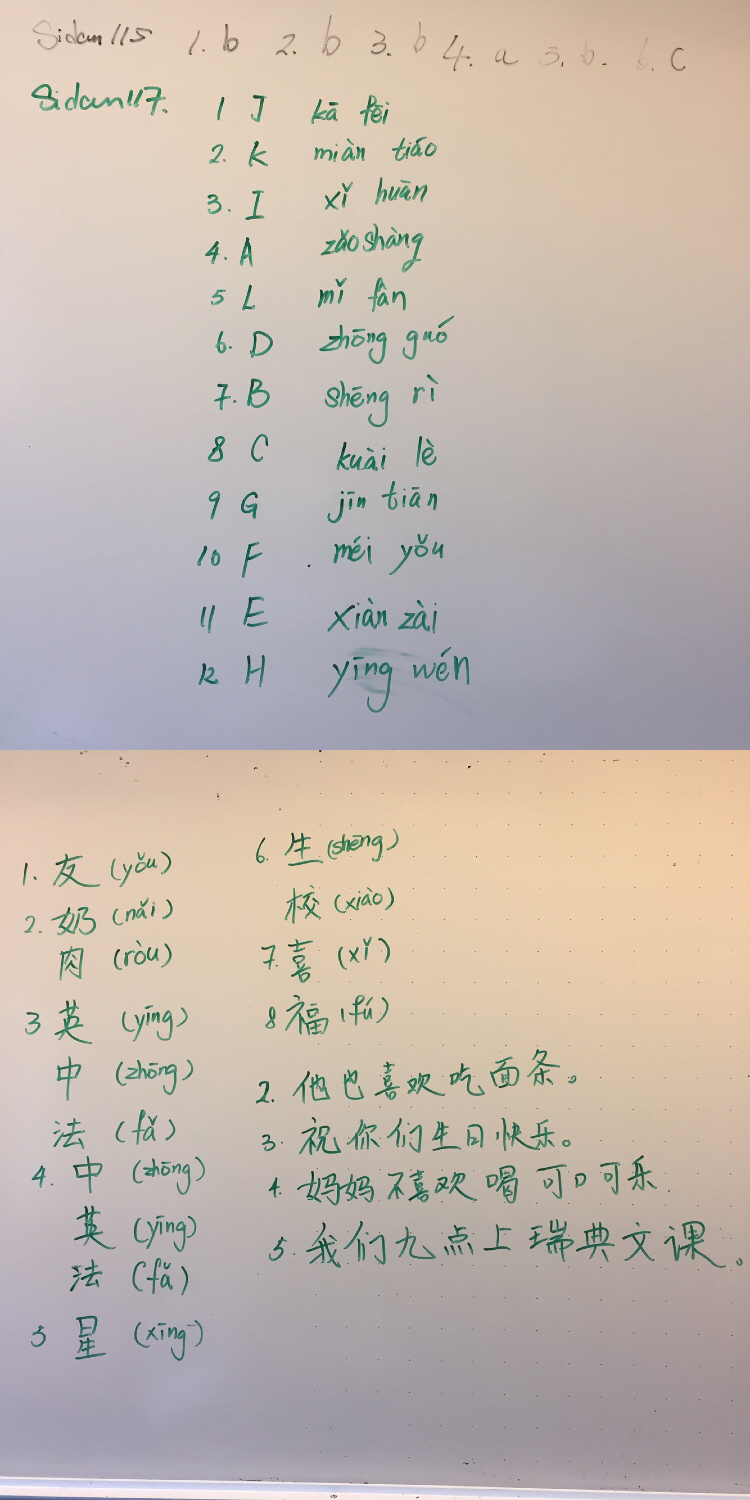 Sidan 115 1. b 2. b 3. b 4. a 5. b. 6. c
Sidan 117. 1 J kā fēi
2. K miàn tiáo
3. I xǐ huān
4. A zǎoshàng
5 L mǐ fàn
6. D zhōng guó
7. B shēng rì
8 C kuài lè
9 G jīn tiān
10 F méi yǒu
11 E xiàn zài
12 H yīng wén
1. 友 (yǒu)
2. 奶 (nǎi)
肉 (ròu)
3 英 (yīng)
中 (zhōng)
法 (fǎ)
4. 中 (zhōng)
英 (yīng)
法 (fǎ)
5 星 (xīng)
6. 生 (shēng)
校 (xiào)
7. 喜 (xǐ)
8 福 (fú)
2. 他也喜欢吃面条。
3. 祝你们生日快乐。
4. 妈妈不喜欢喝可口可乐
5. 我们九点上瑞典文课。